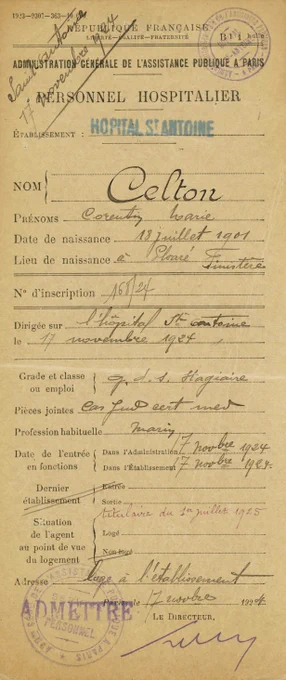 1929-9307-363-
RÉPUBLIQUE FRANÇAISE
LIBERTÉ—ÉGALITÉ—FRATERNITÉ
Saint Antoine
17 novembre 24
ADMINISTRATION GÉNÉRALE DE L'ASSISTANCE PUBLIQUE A PARIS
PERSONNEL HOSPITALIER
ÉTABLISSEMENT : HOPITAL ST ANTOINE
NOM Celton
PRÉNOMS Corentin Marie
Date de naissance 18 juillet 1901
Lieu de naissance à Ploaré Finistère
N° d'inscription 168/24
Dirigée sur l'hôpital St Antoine
le 17 novembre 1924
Grade et classe ou emploi g. d. s. Stagiaire
Pièces jointes Cas Jud cert med
Profession habituelle Marin
Date de l'entrée en fonctions
Dans l'Administration 17 novbre 1924
Dans l'Établissement 17 novbre 1924
Dernier établissement
Entrée
Sortie
titulaire du 1er juillet 1925
Situation de l'agent au point de vue du logement
Logé
Non logé
Adresse loge à l'établissement
ADMETTRE
PERSONNEL
17 novbre 1924
LE DIRECTEUR,